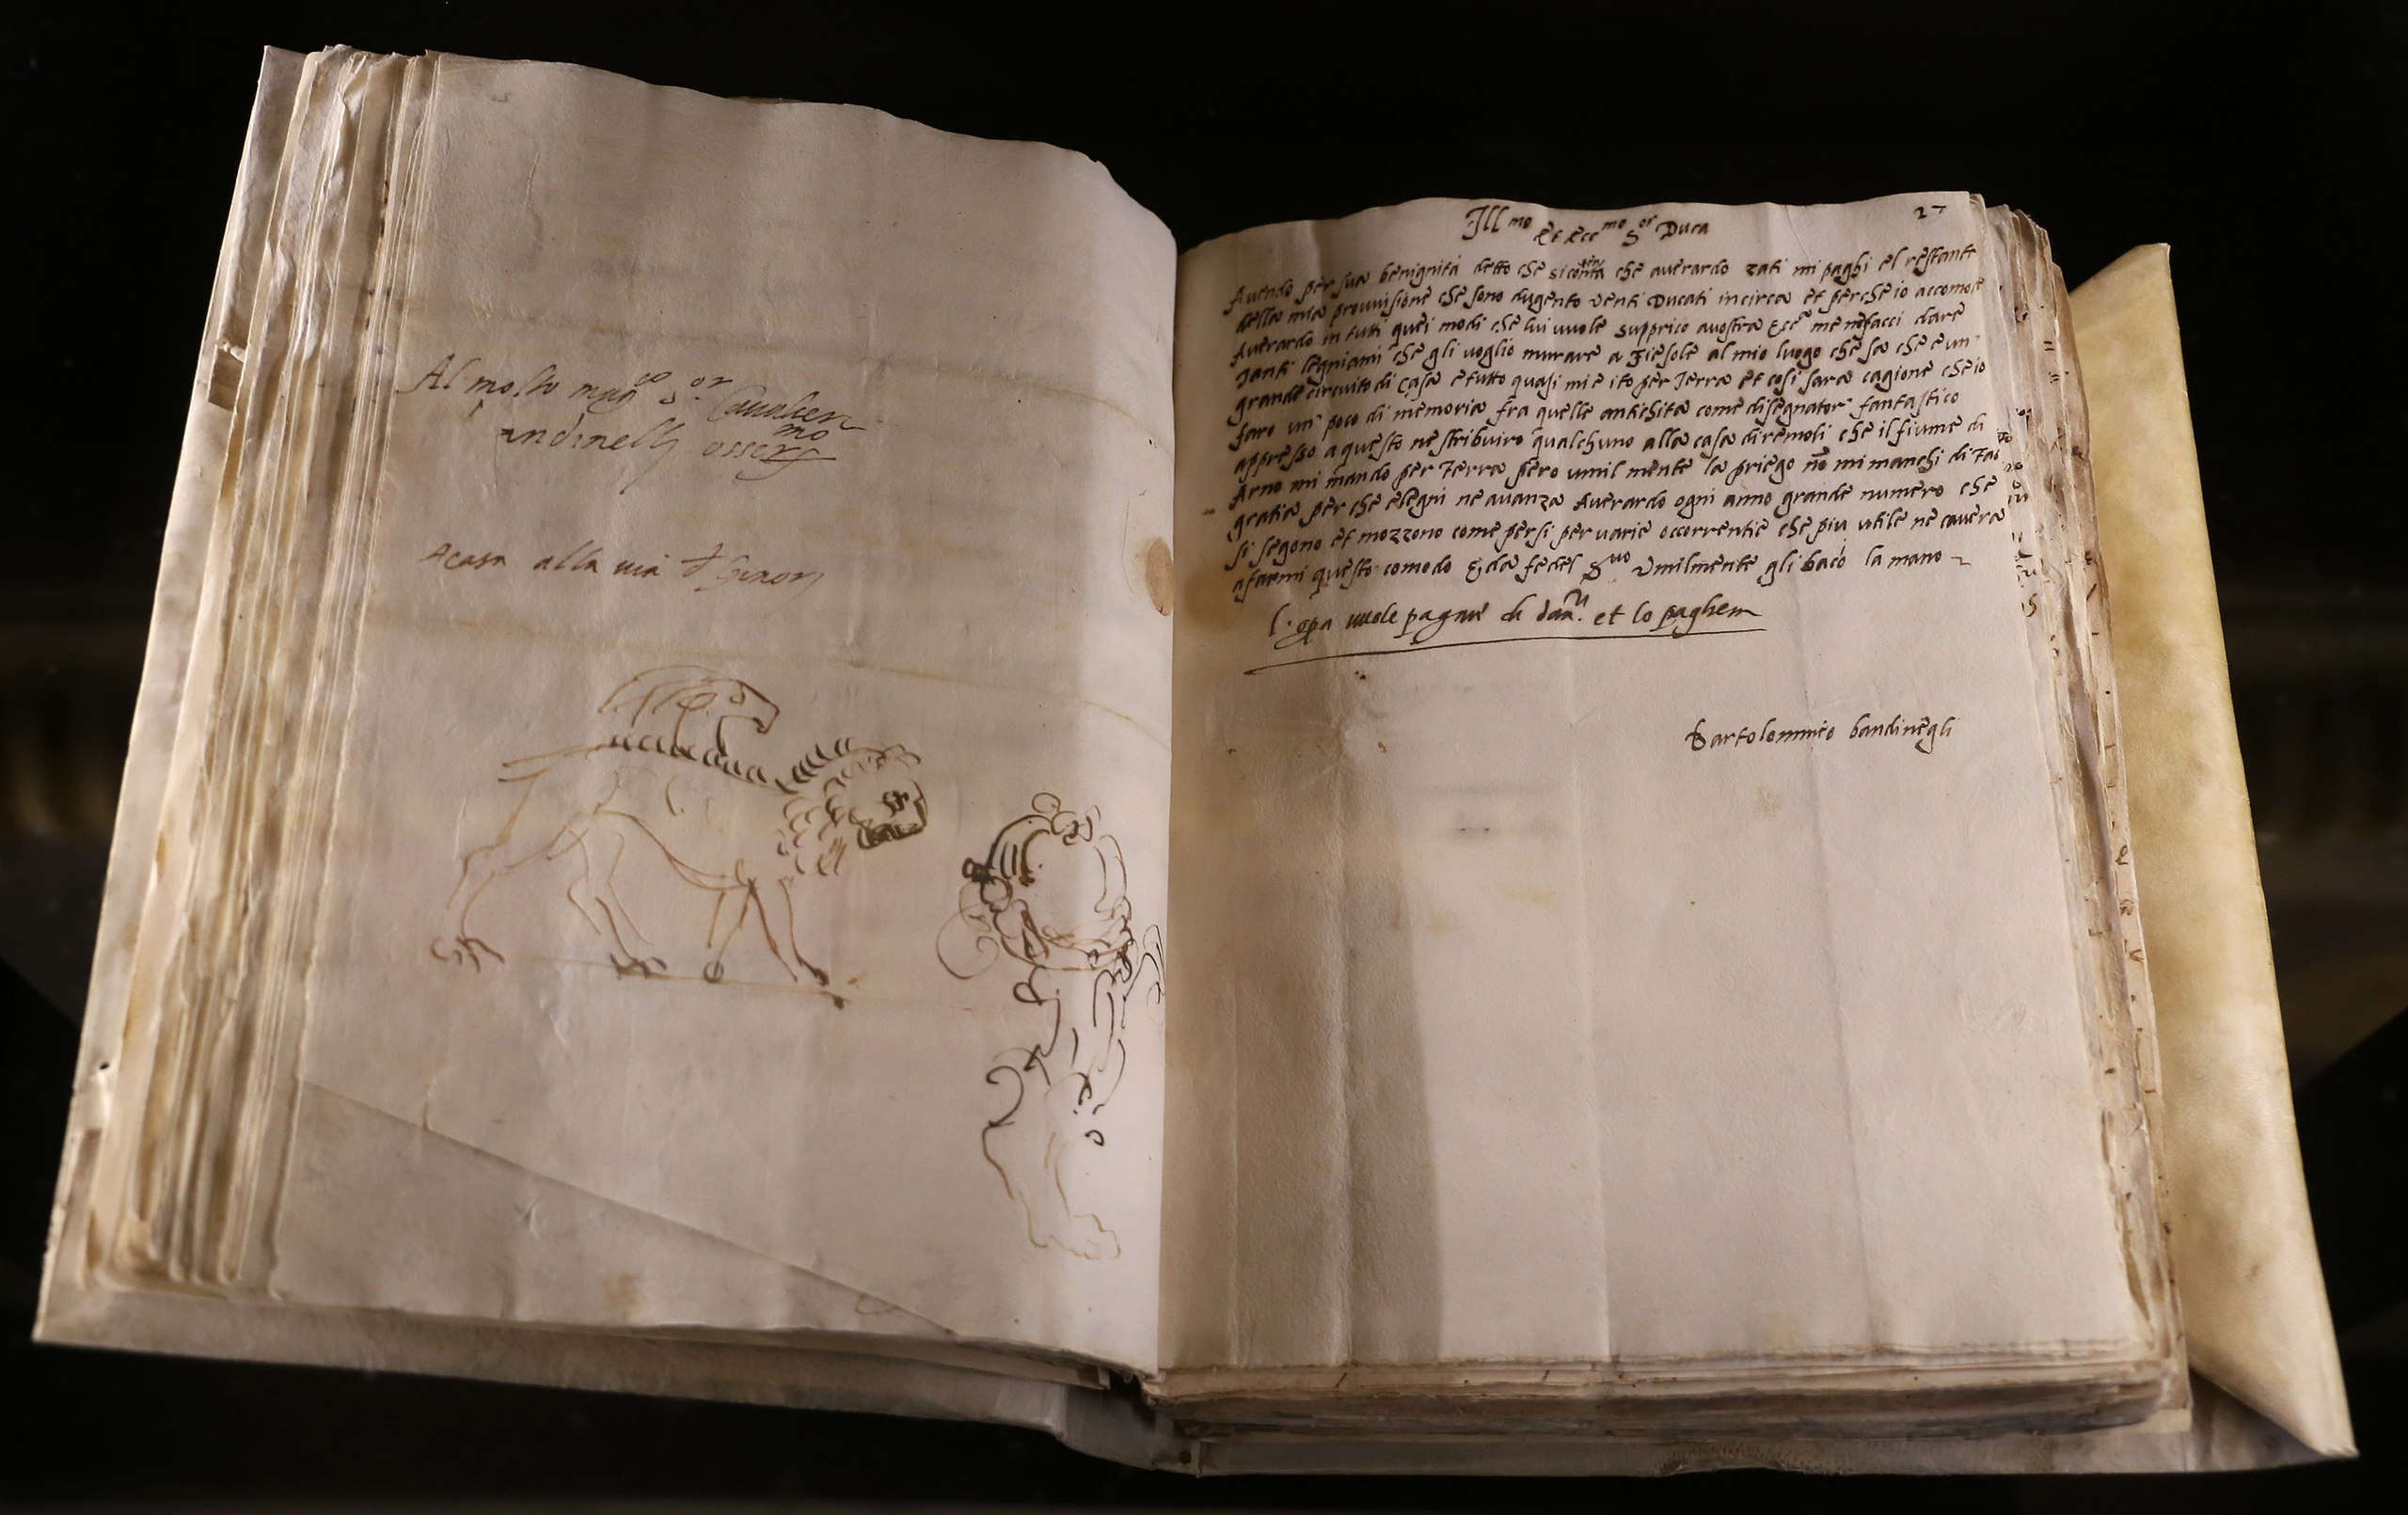 Al molto mag.co S.or Cavalier
andinelli osser.mo
A casa alla via de Ginori
27
Ill mo Et Ecc mo S or Duca
Avendo per sua benignità detto che si contenta che averardo zati mi paghi el restante
della mia provvisione che sono dugento venti Ducati incirca et perche io accomodi
Averardo in tutti quei modi che lui vuole supprico a vostra Ecc.a me ne facci dare
tanti legniami che gli voglio murare a Fiesole al mio luogo che sa che e un
grande circuito di casa e tutto quasi mi e ito per Terra et cosi sara cagione che io
faro un poco di memoria fra quelle antichita come disegnator fantastico
appresso a questo ne stribuiro qualchuno alla casa di remoli che il fiume di
Arno mi mando per Terra pero umil mente la priego nō mi manchi di
gratia per che e legni ne avanza Averardo ogni anno grande numero che
si segono et mozzono come persi per varie occorrentie che piu utile ne cavera
a farmi questo comodo E da fedel S vo Umilmente gli bacio la mano
l'opa vuole pagare di dan. et lo paghera
bartolommeo bandinegli